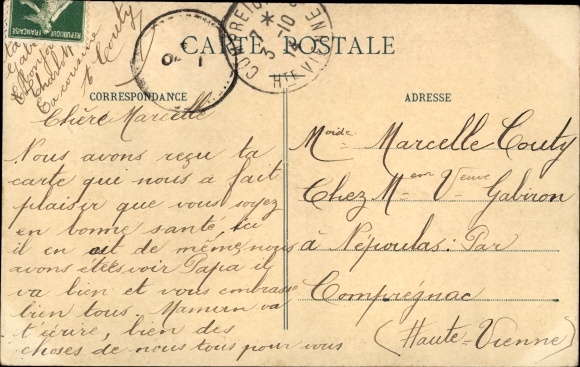 CARTE POSTALE
CORRESPONDANCE
ADRESSE
Chère Marcelle
Nous avons reçu ta
carte qui nous a fait
plaisir que vous soyez
en bonne santé, ici
il en est de même, nous
avons étés voir Papa il
va bien et vous embrasse
bien tous. Maman va
t'écrire, bien des
choses de nous tous pour vous
Ta cousine
Couty
Marcelle Couty
Chez Mme Veuve Gabiron
à Népoulas: Par
Compregnac
(Haute-Vienne)
HTE VIENNE